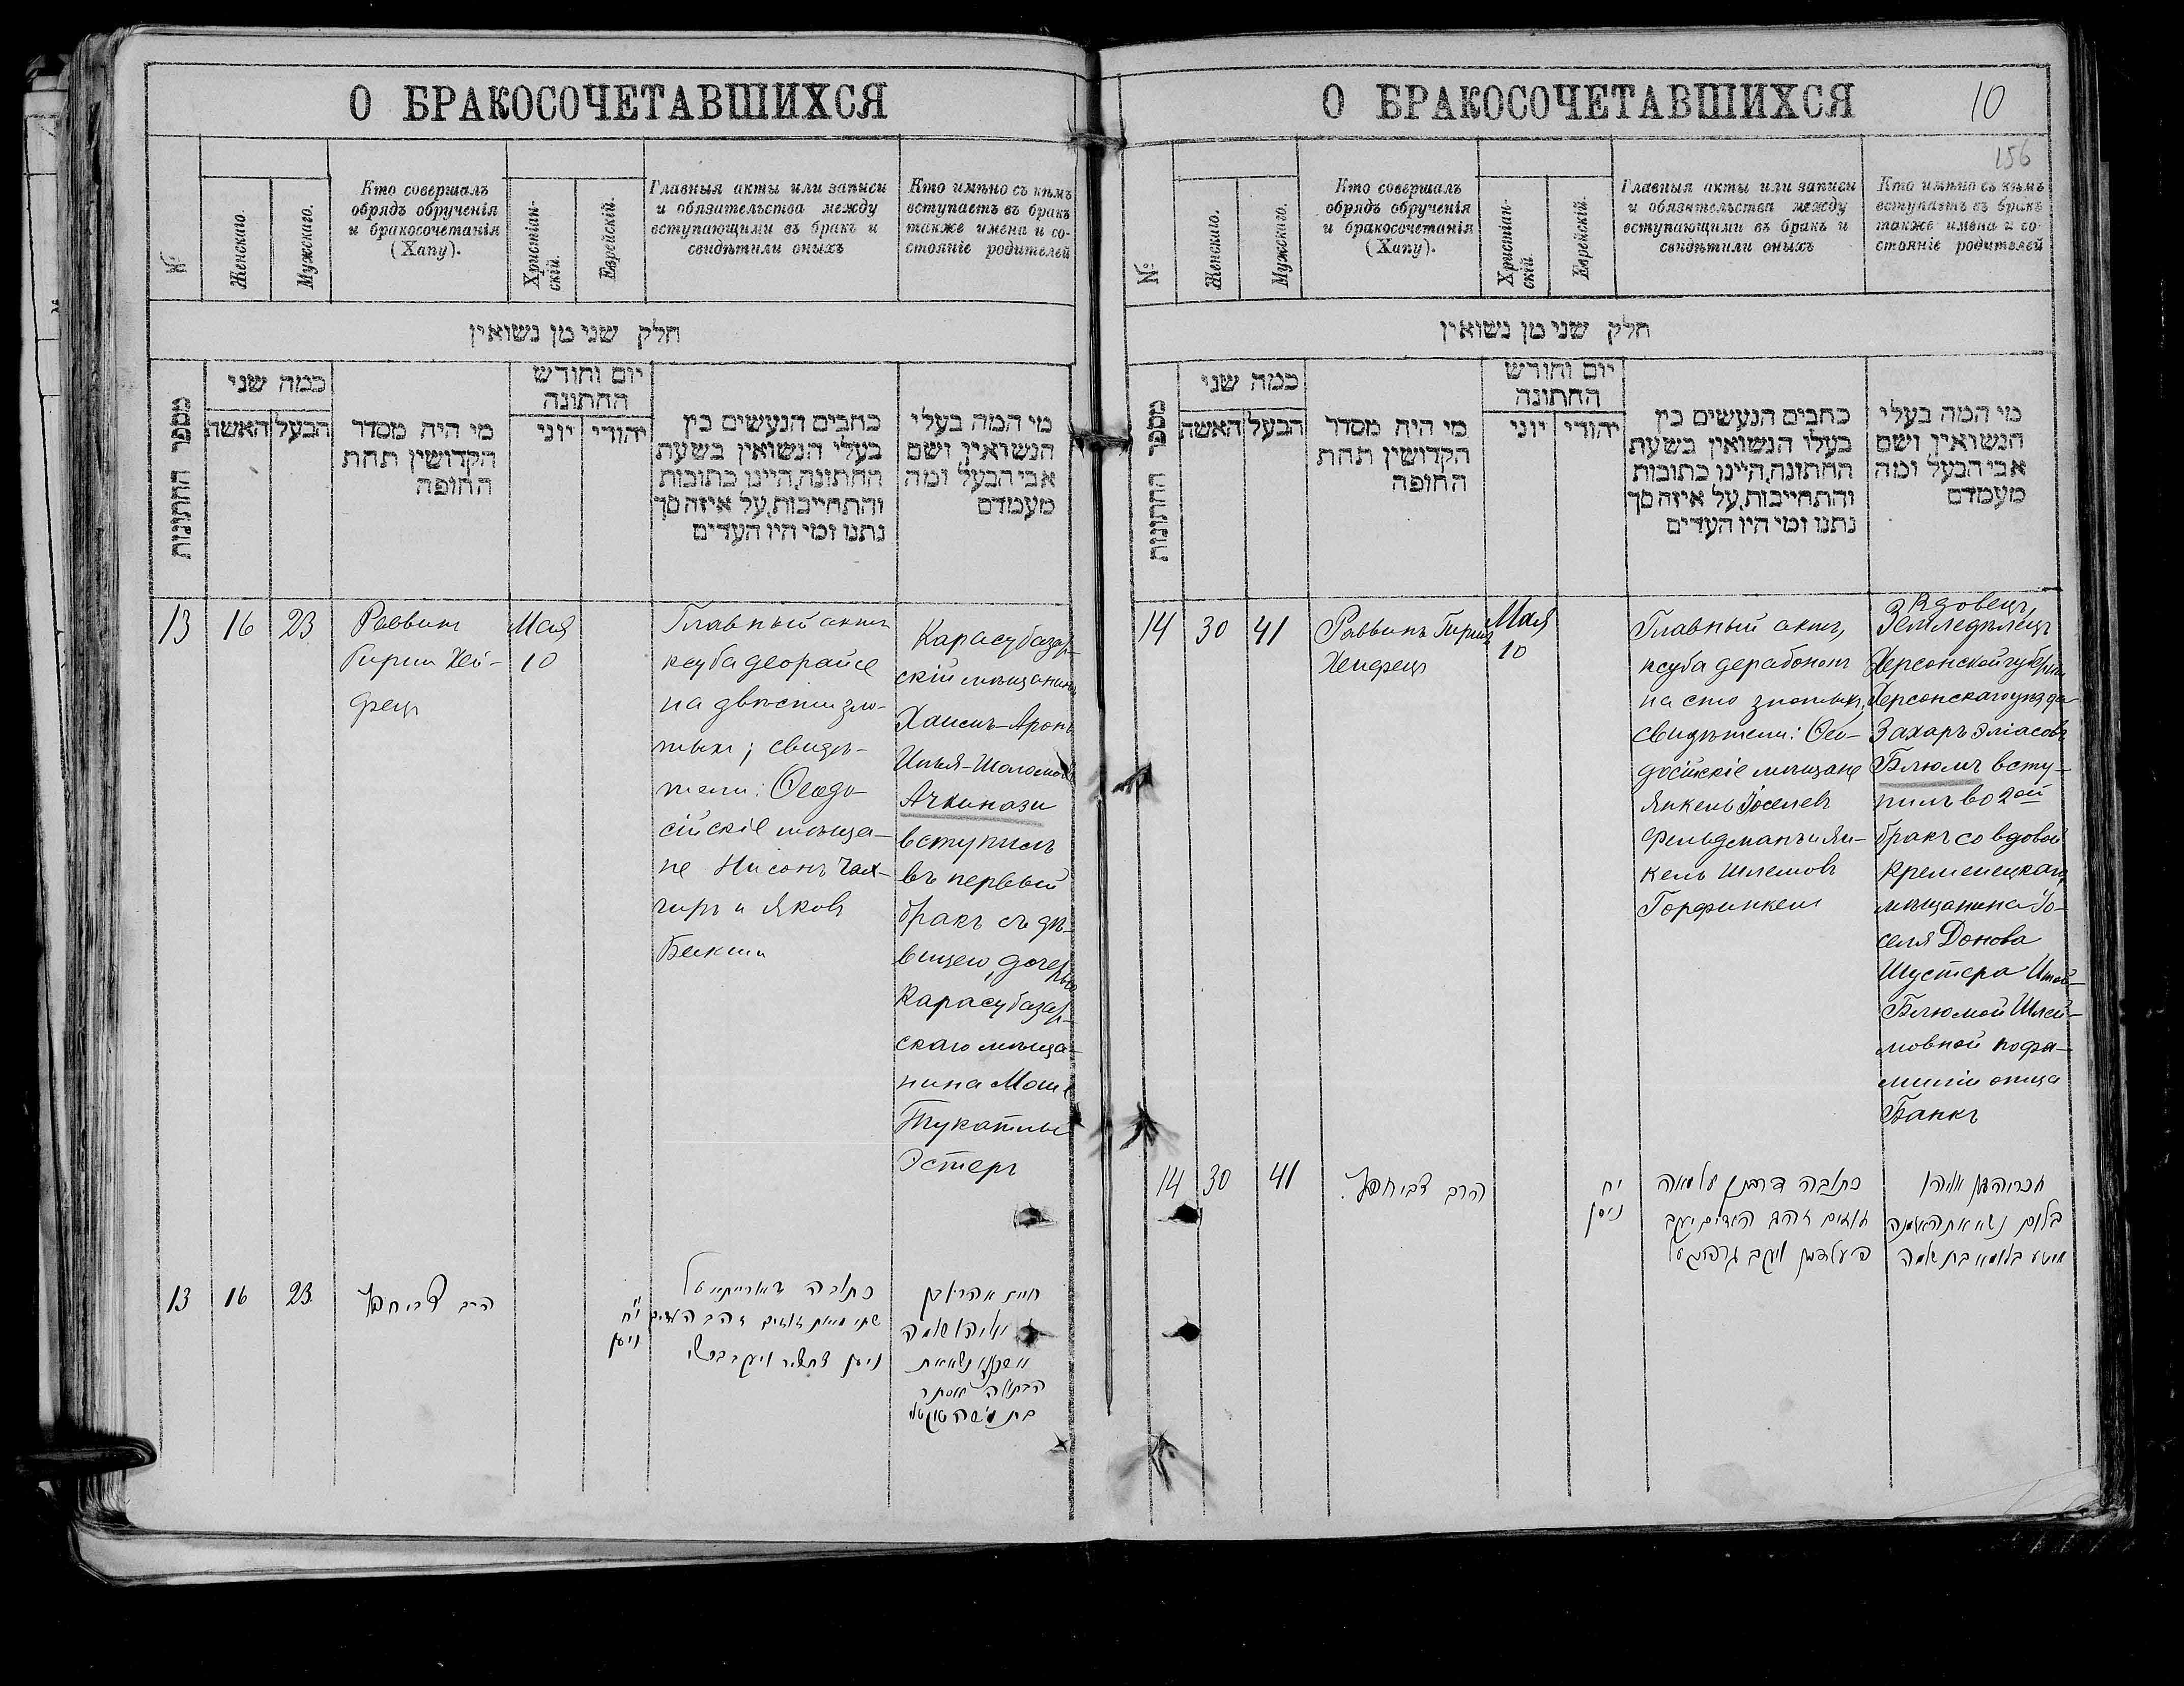 О БРАКОСОЧЕТАВШИХСЯ
№
Женскаго.
Мужскаго.
Кто совершалъ
обрядъ обрученія
и бракосочетанія
(Хапу).
Христіан-
скій.
Еврейскій.
Главныя акты или записи
и обязательства между
вступающими въ бракъ и
свидѣтили оныхъ
Кто имѣно съ кѣмъ
вступаетъ въ бракъ
также имена и со-
стояніе родителей
חלק שני מן נשואין
מספר החתונות
כמה שני
האשה
הבעל
מי היה מסדר
הקדושין תחת
החופה
יום וחודש
החתונה
יוני
יהודי
כתבים הנעשים בין
בעלי הנשואין בשעת
החתונה, היינו כתובות
והתחייבות, על איזה סך
נתנו ומי היו העדים
מי המה בעלי
הנשואין ושם
אבי הבעל ומה
מעמדם
13
16
23
Раввинъ
Гирш Хей-
фецъ
Мая
10
Главный актъ
ксуба деорайсе
на двѣсти зло-
тыхъ; свидѣ-
тели: Ѳеодо-
сійскіе мѣща-
не Нисонъ Чах-
чиръ и Яковъ
Бакши
Карасубазар-
скій мѣщанинъ
Хаимъ-Аронъ
Илья-Шоломовъ
Ачкинази
вступилъ
въ первый
бракъ съ дѣ-
вицею, дочерью
Карасубазар-
скаго мѣща-
нина Моше
Тукатлы
Эстеръ
13
16
23
הרב צבי חפץ
י"ח
ניסן
כתובה דאורייתא על
שתי מאות זהובים זהב העדים
ניסן ויעקב בכשי
חיים אהרן בן
אליהו שלמה
אשכנזי נשא את
הבתולה אסתר
בת משה טוקטלי
О БРАКОСОЧЕТАВШИХСЯ
10
156
№
Женскаго.
Мужскаго.
Кто совершалъ
обрядъ обрученія
и бракосочетанія
(Хапу).
Христіан-
скій.
Еврейскій.
Главныя акты или записи
и обязательства между
вступающими въ бракъ и
свидѣтили оныхъ
Кто имѣно съ кѣмъ
вступаетъ въ бракъ
также имена и со-
стояніе родителей
חלק שני מן נשואין
מספר החתונות
כמה שני
האשה
הבעל
מי היה מסדר
הקדושין תחת
החופה
יום וחודש
החתונה
יוני
יהודי
כתבים הנעשים בין
בעלי הנשואין בשעת
החתונה, היינו כתובות
והתחייבות, על איזה סך
נתנו ומי היו העדים
מי המה בעלי
הנשואין ושם
אבי הבעל ומה
מעמדם
14
30
41
Раввинъ Гиршъ
Хейфецъ
Мая
10
Главный актъ,
ксуба дерабонон
на сто злотыхъ,
свидѣтели: Ѳео-
досійскіе мѣщане
Янкель Іоселевъ
Фельдманъ и Ян-
кель Шлемовъ
Горфинкель
Вдовецъ,
Земледѣлецъ
Херсонской губерніи
Херсонскаго уѣзда
Захаръ Эліасовъ
Блюмъ всту-
пилъ во 2ой
бракъ со вдовой
Кременецкаго
мѣщанина Іо-
селя Донова
Шустера Итой-
Блюмой Шлей-
мовной по фа-
миліи отца
Банкъ
14
30
41
הרב צבי חפץ.
יח
ניסן
כתובה דרבנן על מאה
זהובים זהב העדים יעקב
פעלדמן ויעקב גרפינקעל
זכריה בן אליהו
בלום נשא את האלמנה
איטע בלומא בת שלמה